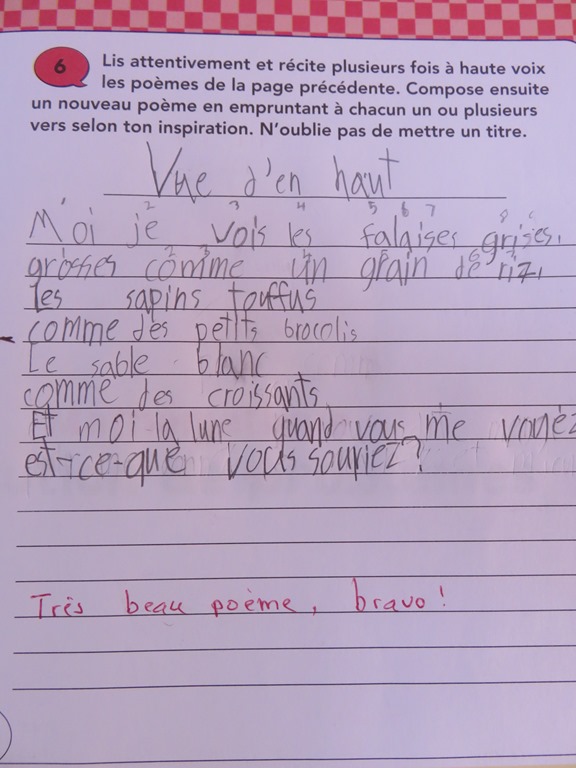 6 Lis attentivement et récite plusieurs fois à haute voix
les poèmes de la page précédente. Compose ensuite
un nouveau poème en empruntant à chacun un ou plusieurs
vers selon ton inspiration. N'oublie pas de mettre un titre.
Vue d'en haut
2 3 4 5 6 7 8
Moi je vois les falaises grises,
grosses comme un grain de riz,
les sapins touffus
comme des petits brocolis
Le sable blanc
comme des croissants
Et moi la lune quand vous me voyéz
est-ce-que vous souriez?
Très beau poème, bravo!